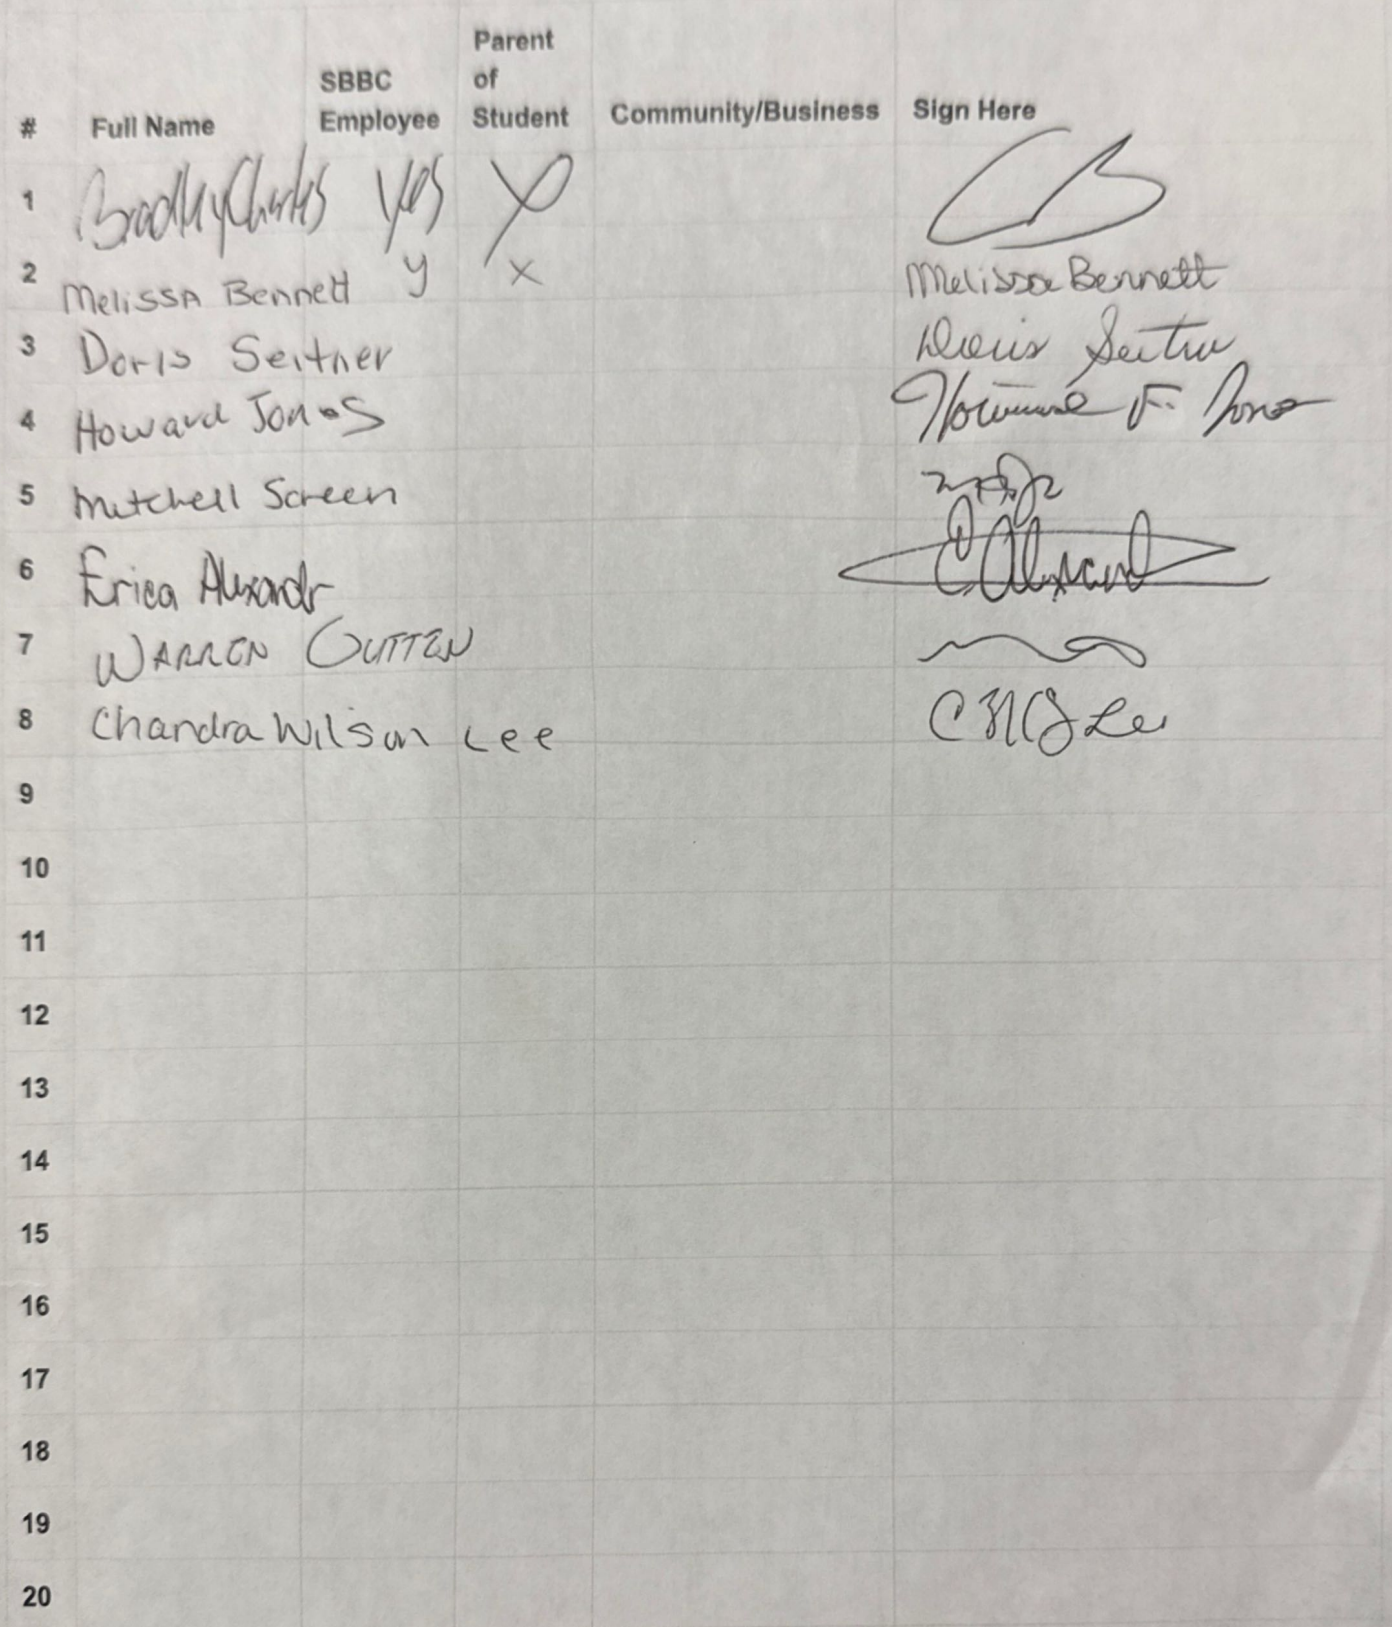 Parent
SBBC of
# Full Name Employee Student Community/Business Sign Here
1 Bradley Charles Yes Y CB
2 Melissa Bennett y x Melissa Bennett
3 Doris Seitner Doris Seitner
4 Howard Jones Howard F. Jones
5 Mitchell Screen
6 Erica Alexandr E. Alexand
7 WARREN OUTTEN
8 Chandra Wilson Lee Lee
9
10
11
12
13
14
15
16
17
18
19
20